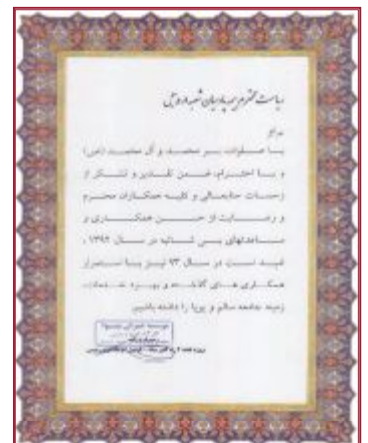 ریاست محترم بیمه پارسیان شعبه اردبیل
با صلوات بر محمد و آل محمد (ص)
و با احترام، ضمن تقدیر و تشکر از
زحمات جنابعالی و کلیه همکاران محترم
و رضایت از حسن همکاری و
مساعدتهای بی شائبه در سال ۱۳۹۲ ،
امید است در سال ۹۳ نیز با استمرار
همکاری های گذشته و بهره خدمات
زمینه جامعه سالم و پویا را داشته باشیم.